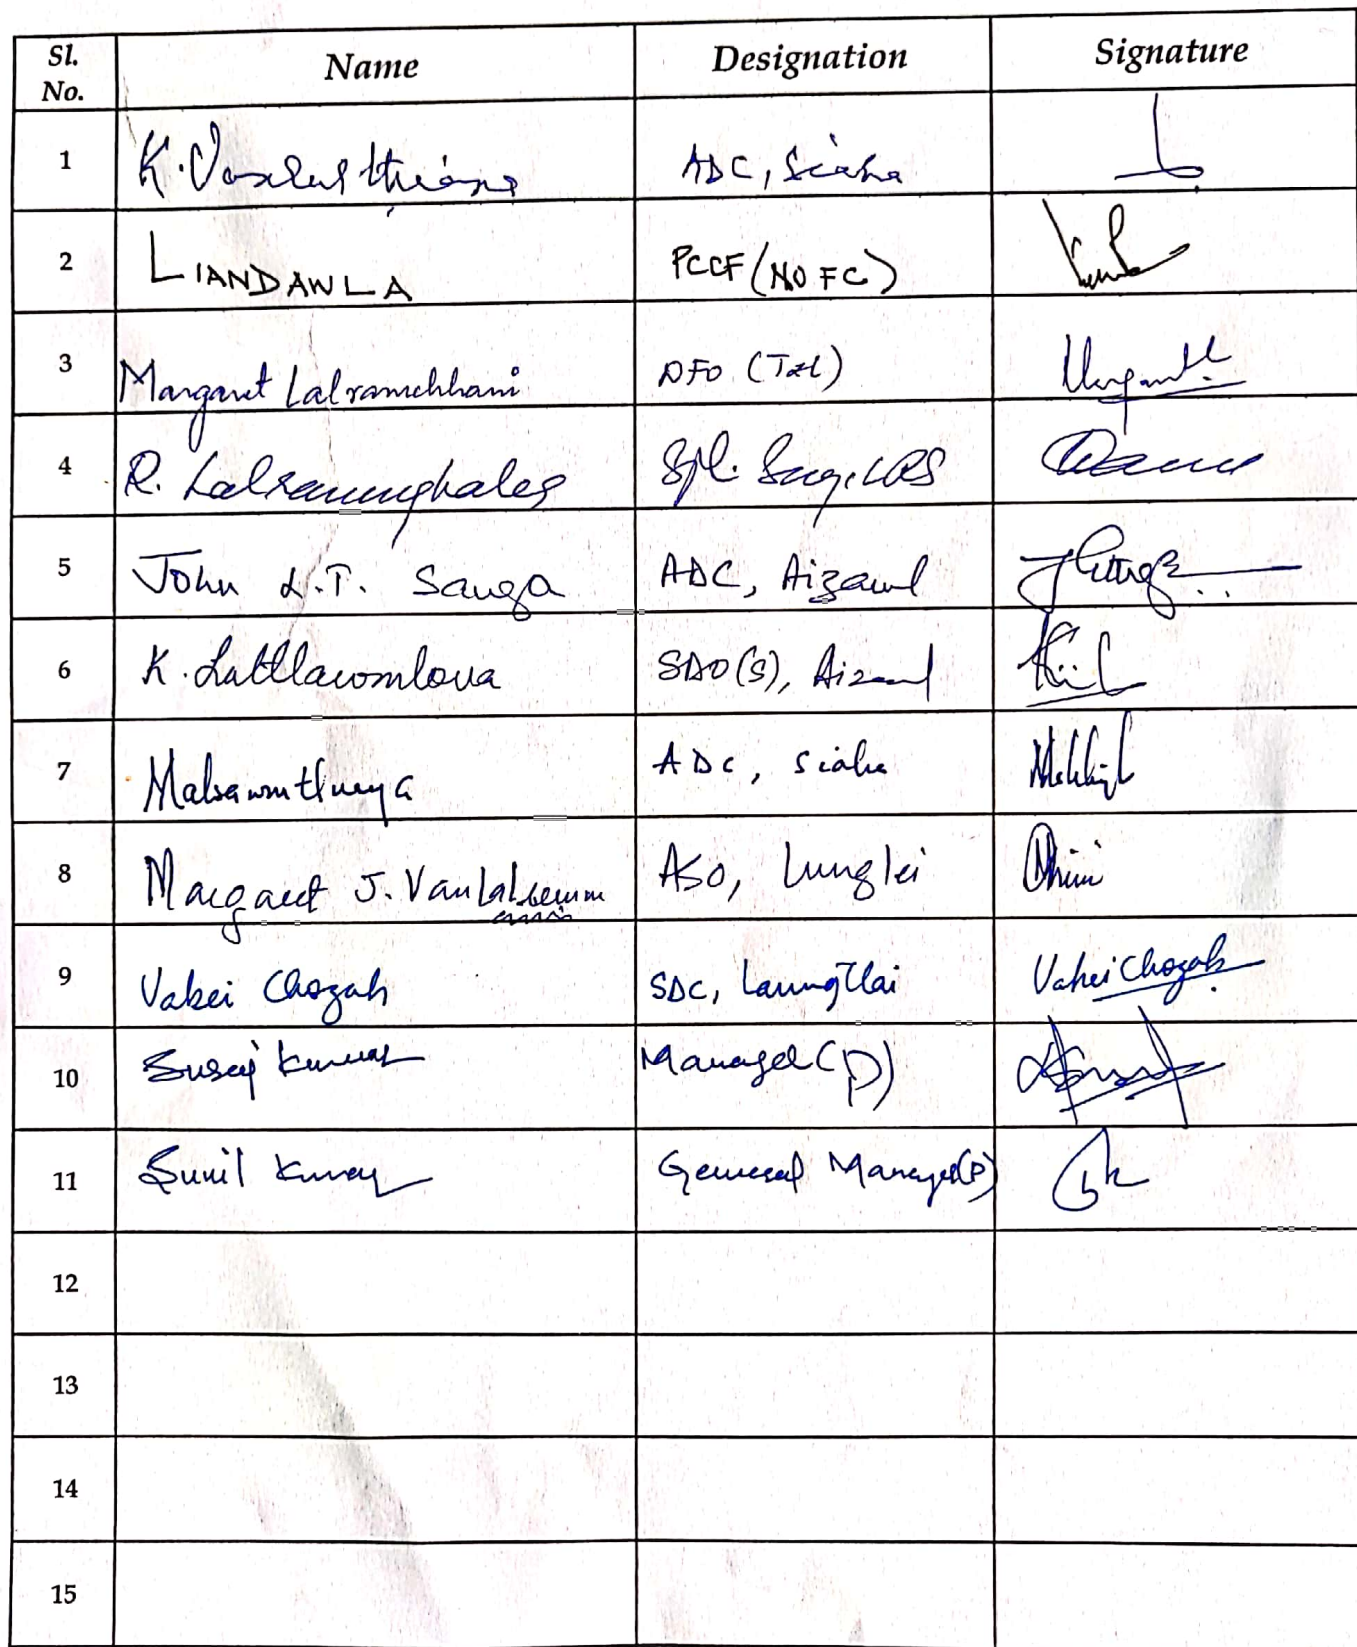 Sl. No. Name Designation Signature
1 K. ADC, Siaha
2 LIANDAWLA PCCF (NOFC)
3 Margaret Lalramchhani DFO (Tzl)
4 R. Spl. LRS
5 John L.T. Sanga ADC, Aizawl
6 K. Laltlawmlova SDO(S), Aizawl
7 Malsawmtluanga ADC, Siaha
8 Margaret J. ASO, Lunglei
9 Vabei Chozah SDC, Lawngtlai Vabei Chozah
10 Suraj Kumar Manager (P)
11 Sunil Kumar General Manager(P)
12
13
14
15